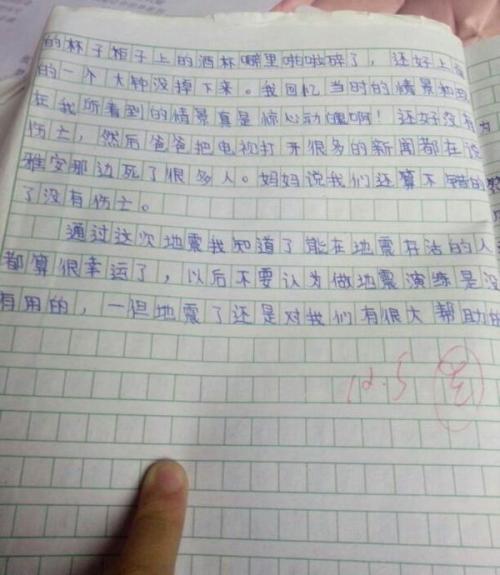 的杯子柜子上的酒杯噼里啪啦碎了，还好上面
的一个大钟没掉下来。我回忆当时的情景和
在我所看到的情景真是惊心动魄啊！还好没有
伤亡，然后爸爸把电视打开很多的新闻都在说
雅安那边死了很多人。妈妈说我们还算不错的
了没有伤亡。
通过这次地震我知道了能在地震存活的人
都算很幸运了，以后不要认为做地震演练是没
有用的，一但地震了还是对我们有很大帮助的
12.5